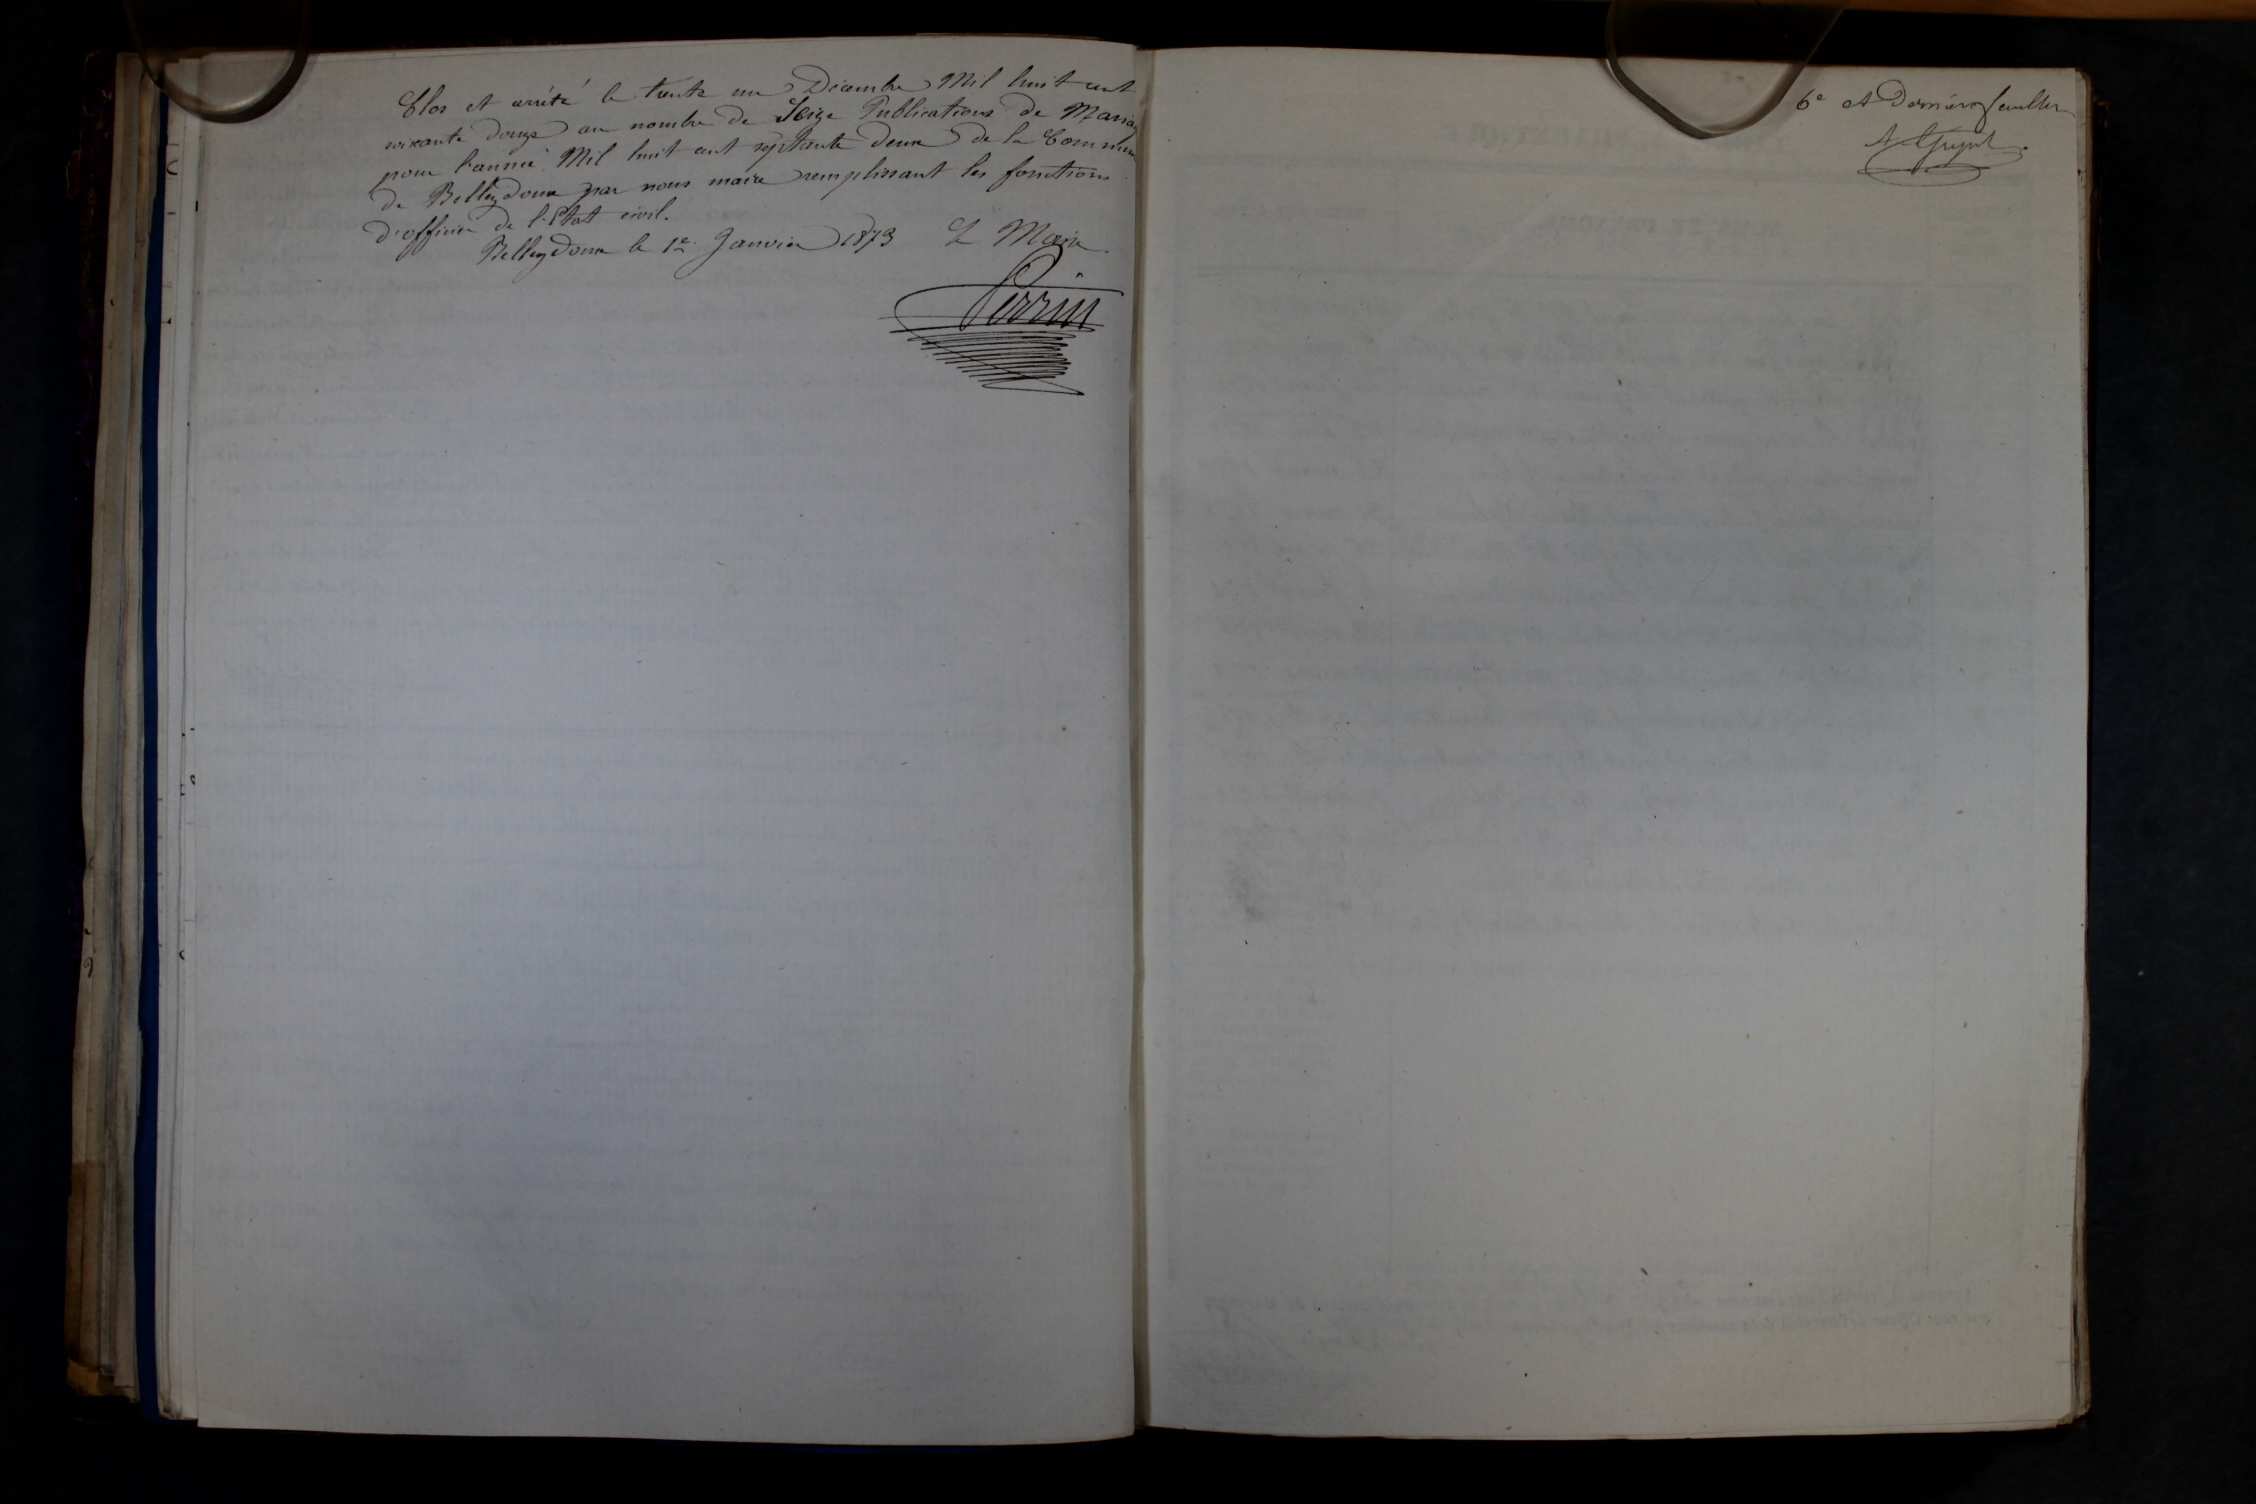 Clos et arrêté le trente un Décembre Mil huit cent
soixante douze au nombre de Seize Publications de Mariage
pour l'année Mil huit cent septante deux de la Commune
de Belleydoux par nous maire remplissant les fonctions
d'officier de l'Etat civil.
Belleydoux le 1er Janvier 1873 Le Maire
Perrin
6e et Dernier feuillet